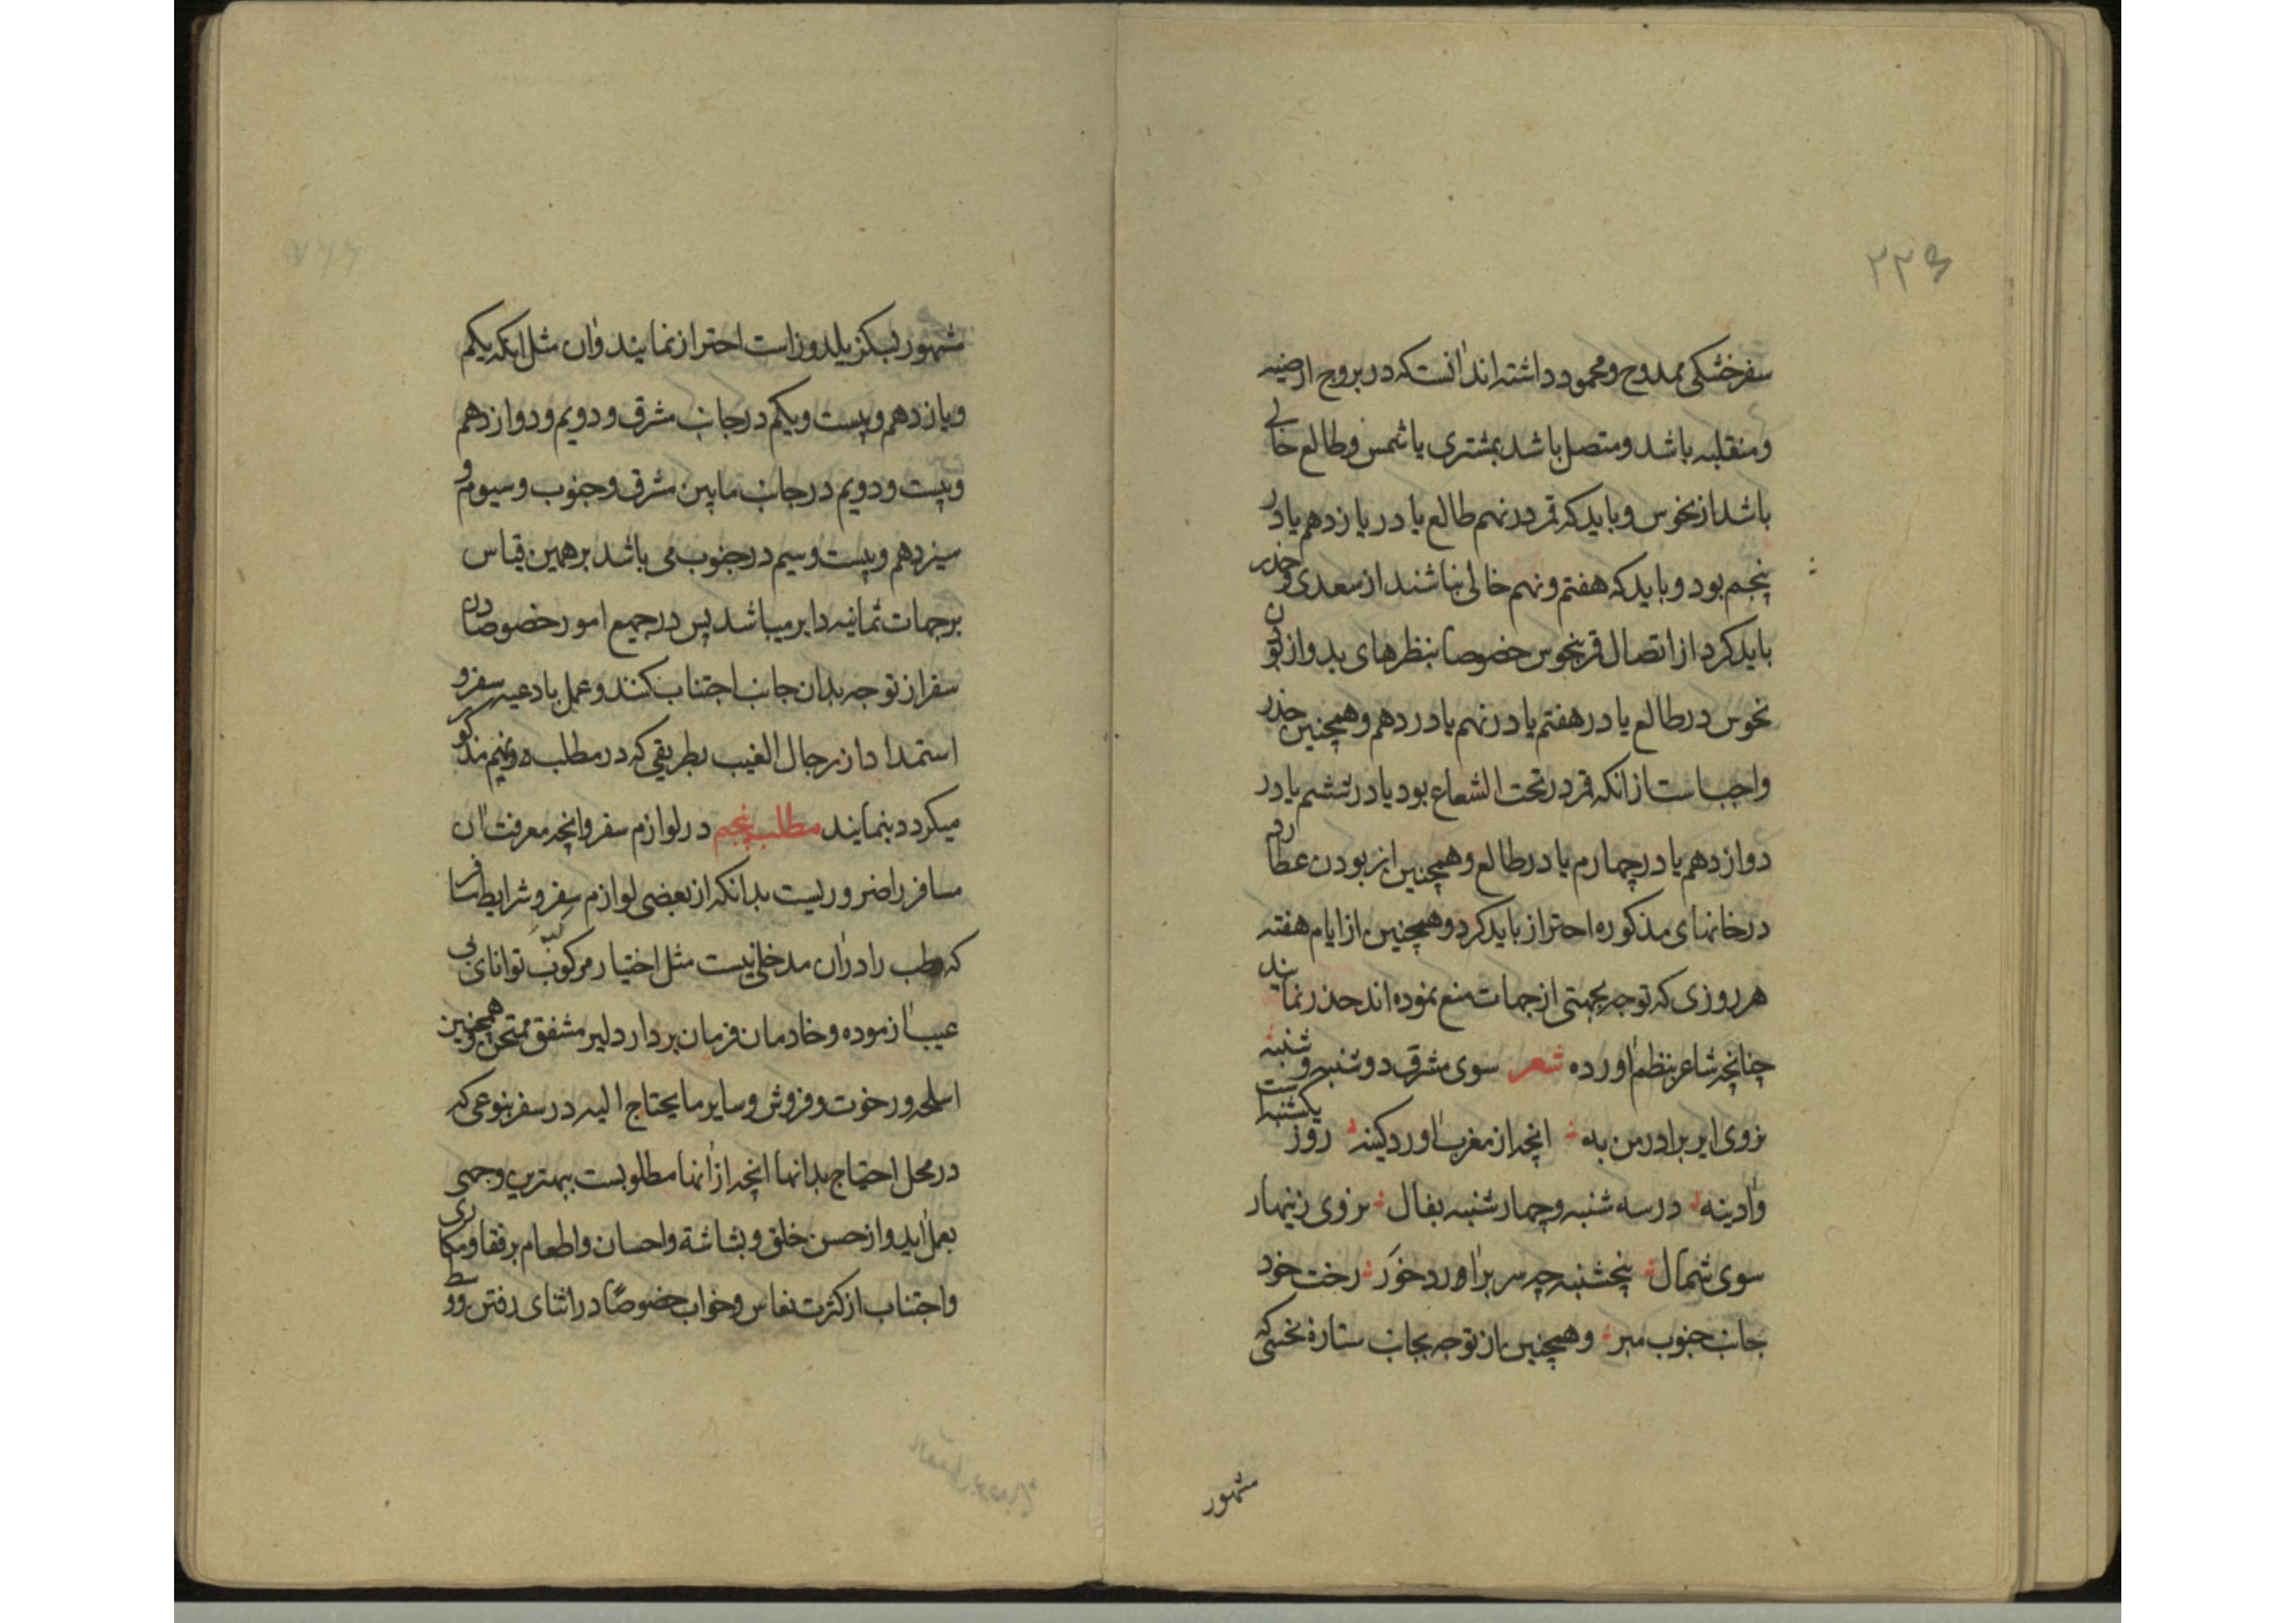 ۲۲۶
سفر خشکی ممدوح و محمود داشته‌اند آنست که در بروج ارضیه
و منقلبه باشد و متصل باشد بمشتری یا شمس و طالع خالی
باشد از نحوس و باید که قمر در نهم طالع یا در یازدهم یا در
پنجم بود و باید که هفتم و نهم خالی نباشند از سعدی و حذر
باید کرد از اتصال قمر بنحوس خصوصا بنظرهای بد و از بودن
نحوس در طالع یا در هفتم یا در نهم یا در دهم و همچنین حذر
واجب است از آنکه قمر در تحت الشعاع بود یا در ششم یا در
دوازدهم یا در چهارم یا در طالع و همچنین از بودن عطارد
در خانهای مذکوره احتراز باید کرد و همچنین از ایام هفته
هر روزی که توجه بجهتی از جهات منع نموده اند حذر نمایند
چنانچه شاعر بنظم آورده شعر سوی مشرق دوشنبه و شنبه
نروی ای برادر من به آنچه از مغرب آورد کینه روز یکشنبه است
و آدینه در سه شنبه و چهارشنبه بفال نروی زینهار
سوی شمال پنجشنبه چه سر برآورد خور رخت خود
جانب جنوب مبر و همچنین از توجه بجانب ستارهٔ نحسی که
مشهور
شهور بسکز یلدوز است احتراز نمایند و آن مثل آنکه یکم
و یازدهم و بیست و یکم در جانب مشرق و دویم و دوازدهم
و بیست و دویم در جانب مابین مشرق و جنوب و سیوم و
سیزدهم و بیست و سیم در جنوب می باشد بر همین قیاس
بر جهات ثمانیه دایر میباشد پس در جمیع امور خصوصا در
سفر از توجه بدان جانب اجتناب کنند و عمل بادعیه سفر و
استمداد از رجال الغیب بطریقی که در مطلب مذکور
میکردد بنمایند مطلب پنجم در لوازم سفر و آنچه معرفت آن
مسافر را ضروریست بدانکه از بعضی لوازم سفر و شرایط مسافر
که طب را در آن مدخلی نیست مثل اختیار مرکوب توانای بی
عیب آزموده و خادمان فرمان بردار دلیر مشفق ممتحن و همچنین
اسلحه و رخوت و فروش و سایر ما یحتاج الیه در سفر بنوعی که
در محل احتیاج بدانها آنچه از آنها مطلوبست ببهترین وجهی
بعمل آید و از حسن خلق و بشاشة و احسان و اطعام بر رفقا و مکاری
و اجتناب از کثرت نعاس و خواب خصوصًا در اثنای رفتن و در